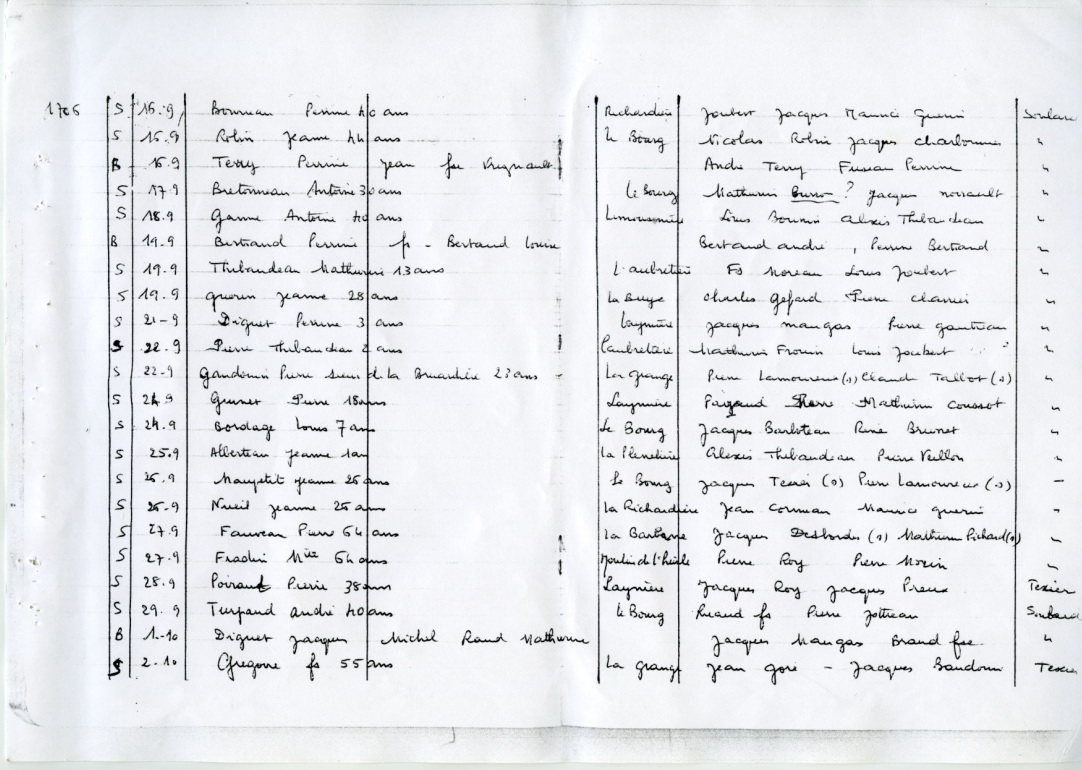 1706 S 15.9 Perrine 40 ans Richardière Joubert Jacques Maurice Guerin
S 15.9 Robin Jeanne 44 ans le Bourg Nicolas Robin Jacques Charbonnier "
B 16.9 Terry Perrine Jean fse Vrignault Andre Terry Perrine "
S 17.9 Bretonneau Antoine 30 ans le Bourg Mathurin ? Jacques "
S 18.9 Antoine 40 ans Louis Alexis Thibaudeau "
B 19.9 Bertrand Perrine fs - Bertaud Louise Bertaud andre, Perrine Bertrand "
S 19.9 Thibaudeau Mathurin 13 ans L'aubretière Fs Moreau Louis Joubert "
S 19.9 guerin Jeanne 28 ans Charles Gefard Pierre "
S 21-9 Diguet Perrine 3 ans Laynière Jacques mangas Pierre gautreau "
S 22.9 Pierre Thibaudeau 2 ans L'aubretière Mathurin Frouin Louis Joubert "
S 22.9 Gaudouin Pierre sieur de la 23 ans - La grange Pierre Lamoureux (s) Claude Tallot (s) "
S 24.9 Pierre 18 ans Laynière Mathurin Coussot "
S 24.9 Bordage Louis 7 ans Le Bourg Jacques Barboteau René Brunet "
S 25.9 Alberteau Jeanne 1 an Alexis Thibaudeau Pierre Veillon "
S 25.9 Maupetit Jeanne 25 ans Le Bourg Jacques Texier (s) Pierre Lamoureux (s) -
S 25.9 Jeanne 25 ans La Richardière Jean Maurice guerin "
S 27.9 Fauveau Pierre 64 ans Jacques Desbordes (s) Mathurin Pichard (s) "
S 27.9 Fradin 64 ans Moulin de l' Pierre Roy Pierre Morin "
S 28.9 Poiraut Pierre 38 ans Laynière Jacques Roy Jacques Preux Texier
S 29.9 Turpaud andré 40 ans le Bourg fs Pierre
B 1-10 Diguet Jacques Michel Raud Mathurine Jacques Mangas Braud fse "
S 2.10 Gregoire fs 55 ans La grange Jean gore - Jacques Baudouin Texier